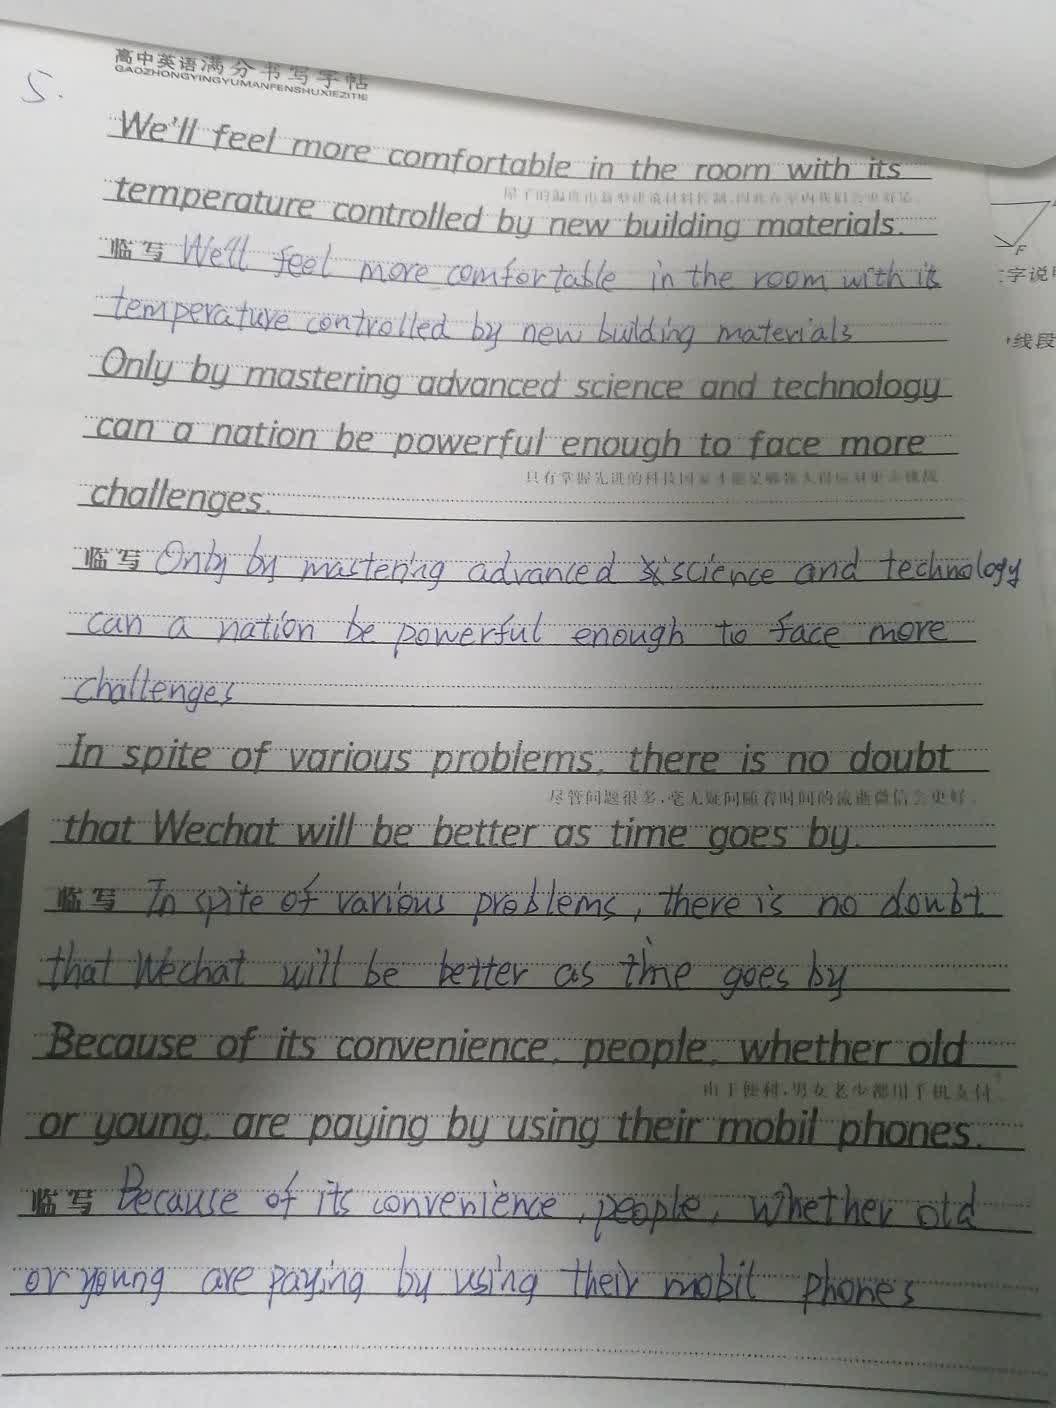 5.
高中英语满分书写字帖
GAOZHONGYINGYUMANFENSHUXIEZITIE
We'll feel more comfortable in the room with its
temperature controlled by new building materials.
临写 We'll feel more comfortable in the room with its
temperature controlled by new building materials
Only by mastering advanced science and technology
can a nation be powerful enough to face more
只有掌握先进的科技国家才能足够强大得应对更多挑战
challenges.
临写 Only by mastering advanced science and technology
can a nation be powerful enough to face more
challenges
In spite of various problems, there is no doubt
尽管问题很多,毫无疑问随着时间的流逝微信会更好。
that Wechat will be better as time goes by.
临写 In spite of various problems, there is no doubt
that Wechat will be better as time goes by
Because of its convenience, people, whether old
由于便利,男女老少都用手机支付。
or young, are paying by using their mobil phones.
临写 Because of its convenience, people, whether old
or young are paying by using their mobil phones
F
字说明
线段